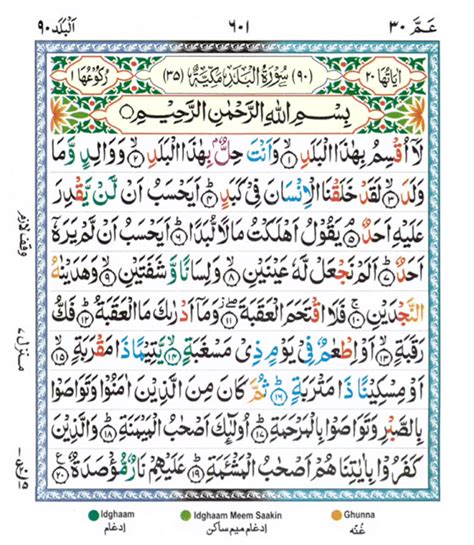 عَمَّ ٣٠
٦٠١
اَلْبَلَد ٩٠
اٰيَاتُهَا ٢٠
(٩٠) سُوْرَةُ الْبَلَدِ مَكِّيَّةٌ (٣٥)
رُكُوْعُهَا ١
بِسْمِ اللّٰهِ الرَّحْمٰنِ الرَّحِيْمِ
لَاۤ اُقْسِمُ بِهٰذَا الْبَلَدِ ۙ﴿١﴾ وَاَنْتَ حِلٌّۢ بِهٰذَا الْبَلَدِ ۙ﴿٢﴾ وَوَالِدٍ وَّمَا
وَلَدَ ۙ﴿٣﴾ لَقَدْ خَلَقْنَا الْاِنْسَانَ فِيْ كَبَدٍ ؕ﴿٤﴾ اَيَحْسَبُ اَنْ لَّنْ يَّقْدِرَ
عَلَيْهِ اَحَدٌ ۘ﴿٥﴾ يَقُوْلُ اَهْلَكْتُ مَالًا لُّبَدًا ؕ﴿٦﴾ اَيَحْسَبُ اَنْ لَّمْ يَرَهٗۤ
اَحَدٌ ؕ﴿٧﴾ اَلَمْ نَجْعَلْ لَّهٗ عَيْنَيْنِ ۙ﴿٨﴾ وَلِسَانًا وَّشَفَتَيْنِ ۙ﴿٩﴾ وَهَدَيْنٰهُ
النَّجْدَيْنِ ۚ﴿١٠﴾ فَلَا اقْتَحَمَ الْعَقَبَةَ ۖ﴿١١﴾ وَمَاۤ اَدْرٰىكَ مَا الْعَقَبَةُ ؕ﴿١٢﴾ فَكُّ
رَقَبَةٍ ۙ﴿١٣﴾ اَوْ اِطْعٰمٌ فِيْ يَوْمٍ ذِيْ مَسْغَبَةٍ ۙ﴿١٤﴾ يَّتِيْمًا ذَا مَقْرَبَةٍ ۙ﴿١٥﴾
اَوْ مِسْكِيْنًا ذَا مَتْرَبَةٍ ؕ﴿١٦﴾ ثُمَّ كَانَ مِنَ الَّذِيْنَ اٰمَنُوْا وَتَوَاصَوْا
بِالصَّبْرِ وَتَوَاصَوْا بِالْمَرْحَمَةِ ؕ﴿١٧﴾ اُولٰٓئِكَ اَصْحٰبُ الْمَيْمَنَةِ ؕ﴿١٨﴾ وَالَّذِيْنَ
كَفَرُوْا بِاٰيٰتِنَا هُمْ اَصْحٰبُ الْمَشْـَٔمَةِ ؕ﴿١٩﴾ عَلَيْهِمْ نَارٌ مُّؤْصَدَةٌ ۠﴿٢٠﴾
وقف لازم
منزل ٧
Idghaam
ادغام
Idghaam Meem Saakin
ادغام میم ساکن
Ghunna
غُنّه